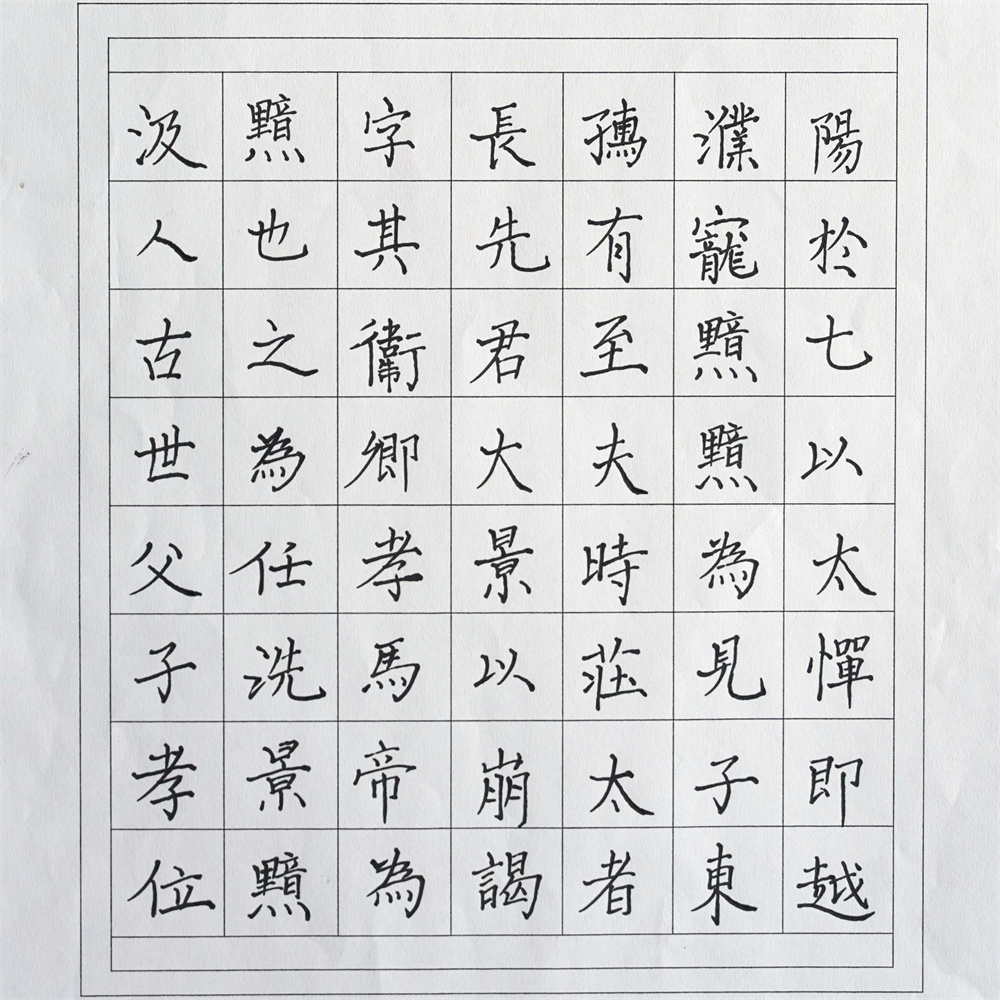 汲黯字長孺濮陽
人也其先有寵於
古之衞君至黯七
世為卿大夫黯以
父任孝景時為太
子洗馬以莊見憚
孝景帝崩太子即
位黯為謁者東越